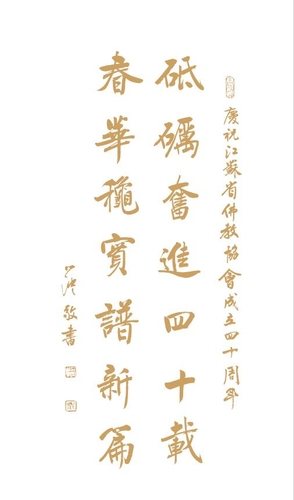 慶祝江蘇省佛教協會成立四十周年
砥礪奮進四十載
春華穐實譜新篇
心澄敬書